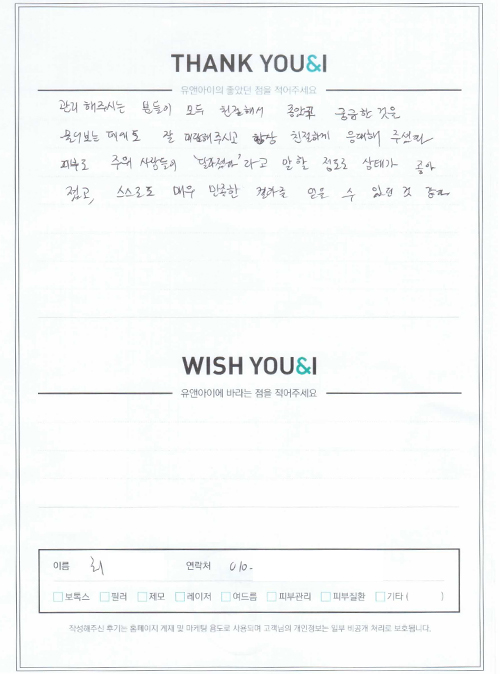 THANK YOU&I
유앤아이의 좋았던 점을 적어주세요
관리 해주시는 분들이 모두 친절해서 좋았고 궁금한 것을
물어보는 데에도 잘 대답해주시고 항상 친절하게 응대해 주셨다.
피부로 주위 사람들이 '달라졌다'라고 말할 정도로 상태가 좋아
졌고, 스스로도 매우 만족한 결과를 얻을 수 있던 것 같다
WISH YOU&I
유앤아이에 바라는 점을 적어주세요
이름 최 연락처 010-
보톡스 필러 제모 레이저 여드름 피부관리 피부질환 기타 ( )
작성해주신 후기는 홈페이지 게재 및 마케팅 용도로 사용되며 고객님의 개인정보는 일부 비공개 처리로 보호됩니다.